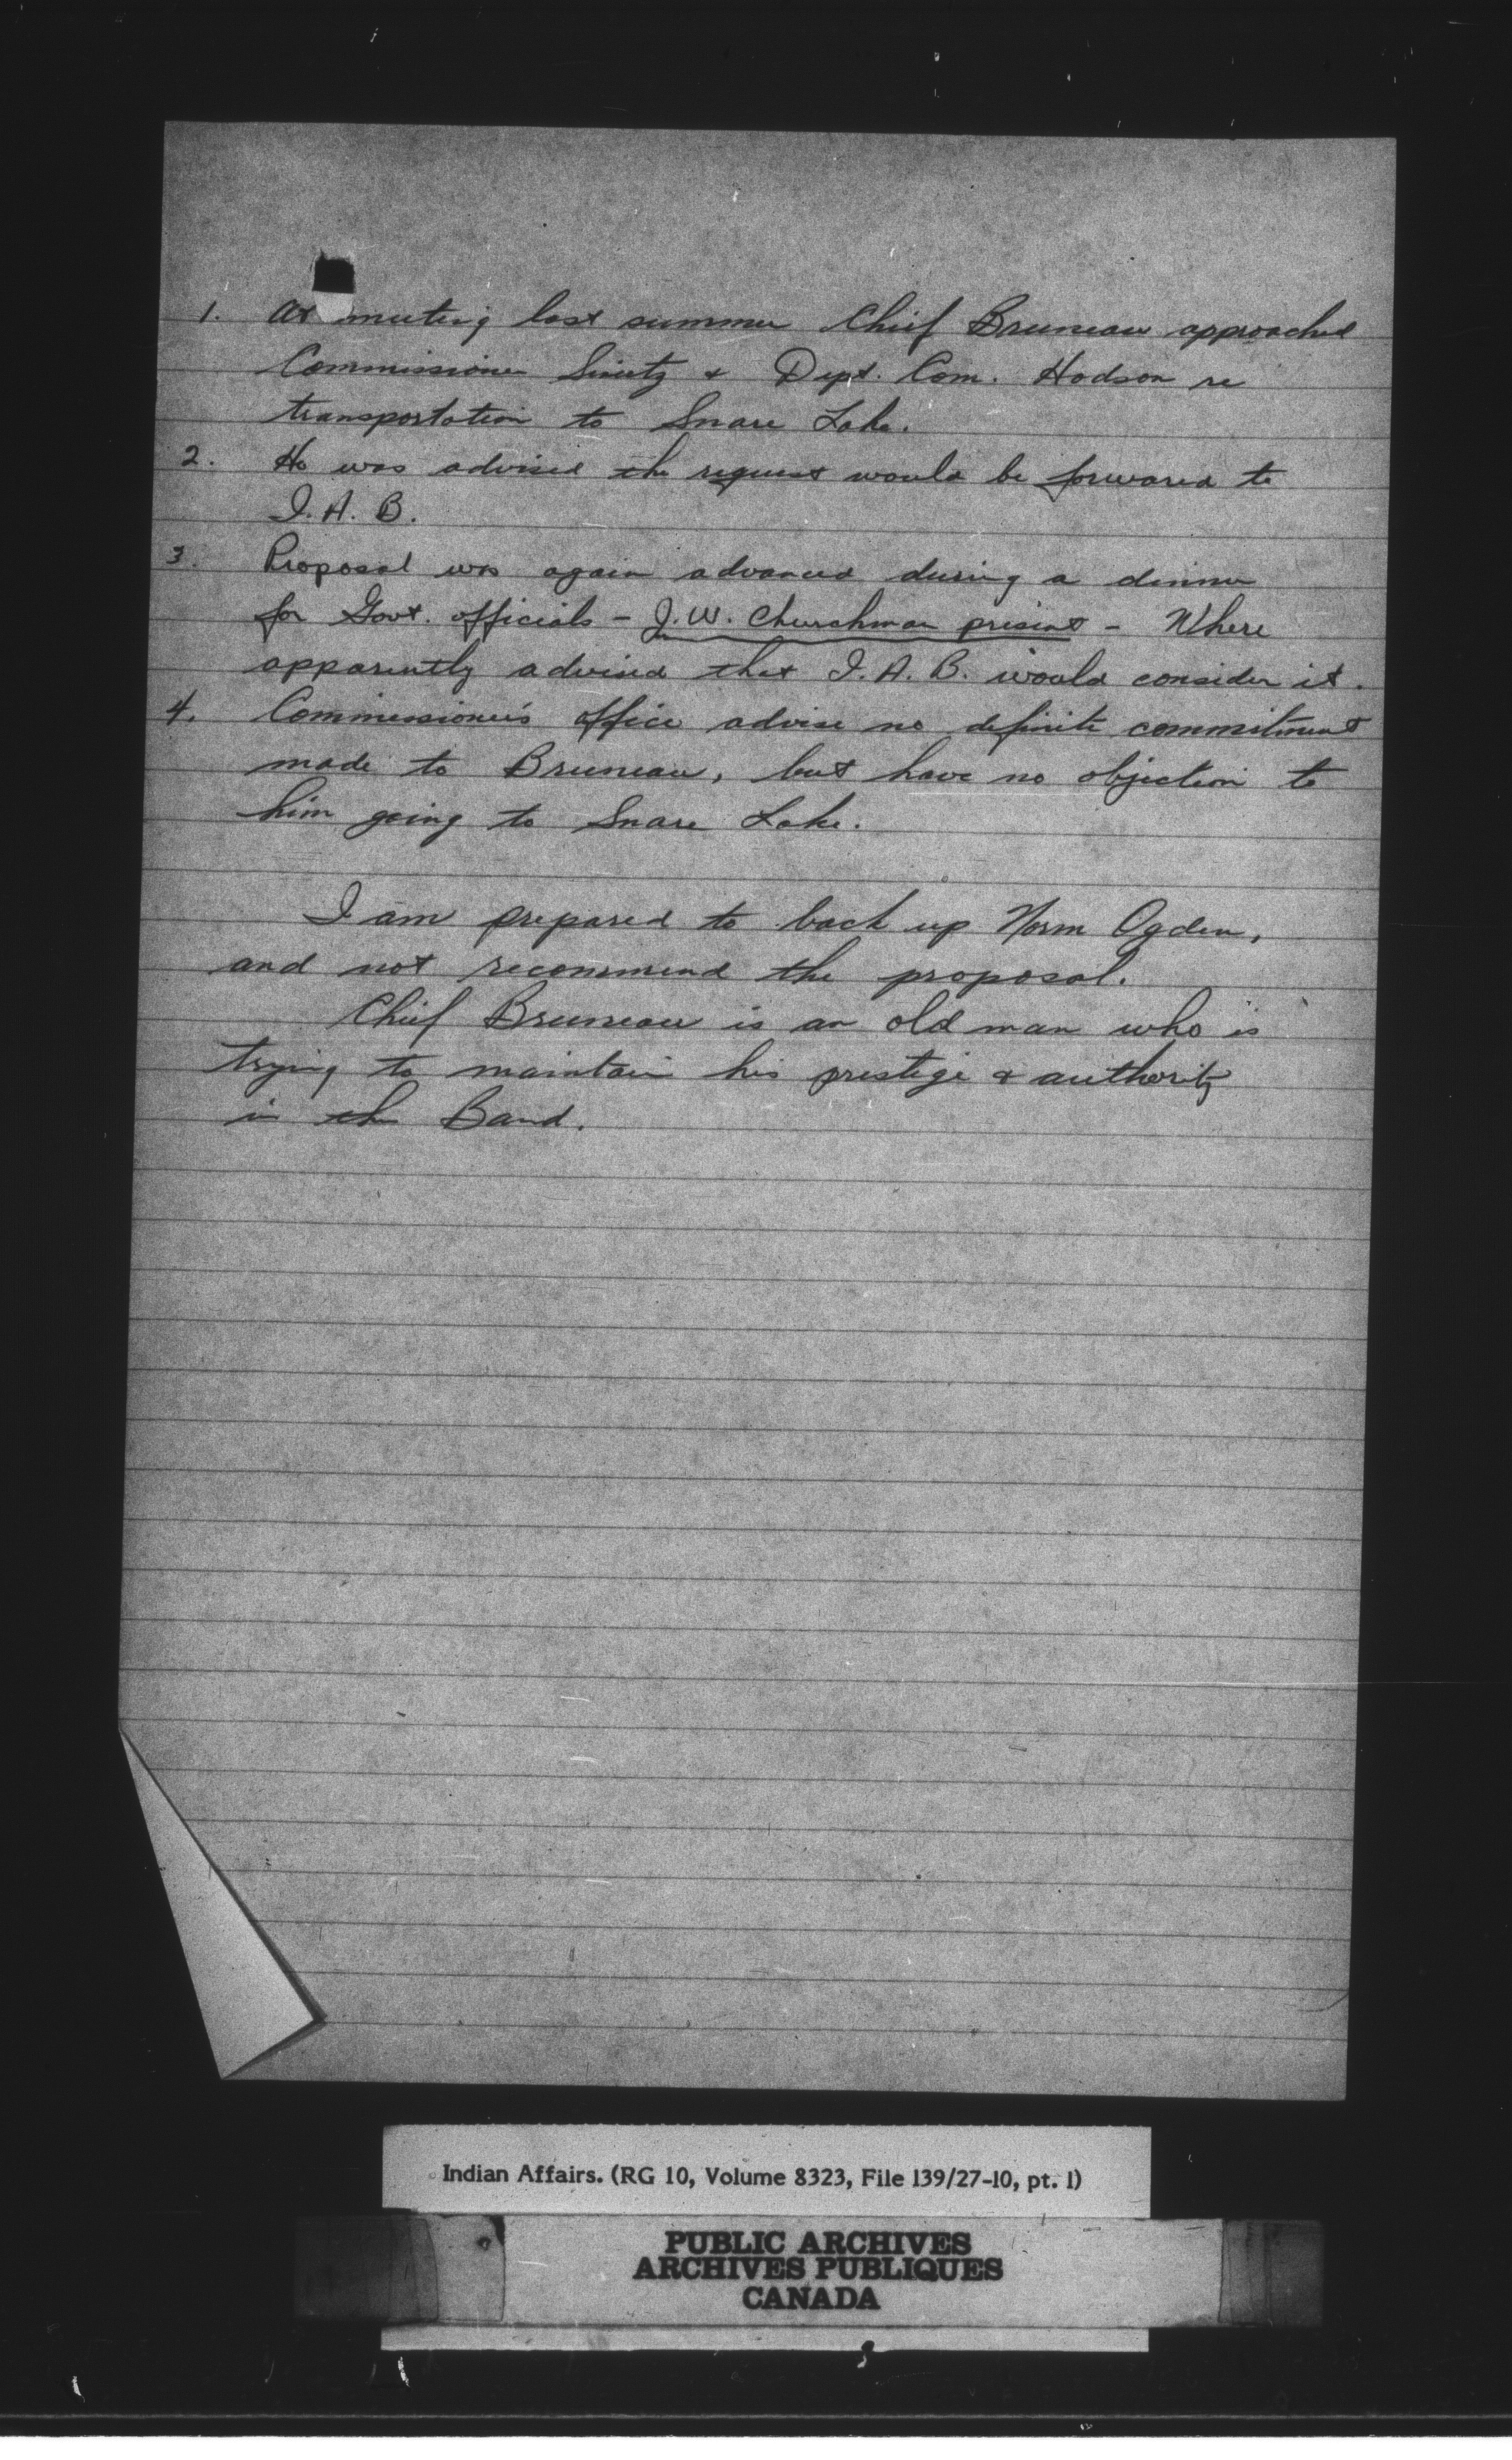 1. At meeting last summer Chief Bruneau approached
Commissioner Sivertz & Dept. Com. Hodson re
transportation to Snare Lake.
2. He was advised the request would be forward to
I.A.B.
3. Proposal was again advanced during a dinner
for Govt. officials - J.W. Churchman present - Where
apparently advised that I.A.B. would consider it.
4. Commissioner's office advise no definite commitment
made to Bruneau, but have no objection to
him going to Snare Lake.
I am prepared to back up Norm Ogden,
and not recommend the proposal.
Chief Bruneau is an old man who is
trying to maintain his prestige & authority
in the Band.
Indian Affairs. (RG 10, Volume 8323, File 139/27-10, pt. 1)
PUBLIC ARCHIVES
ARCHIVES PUBLIQUES
CANADA